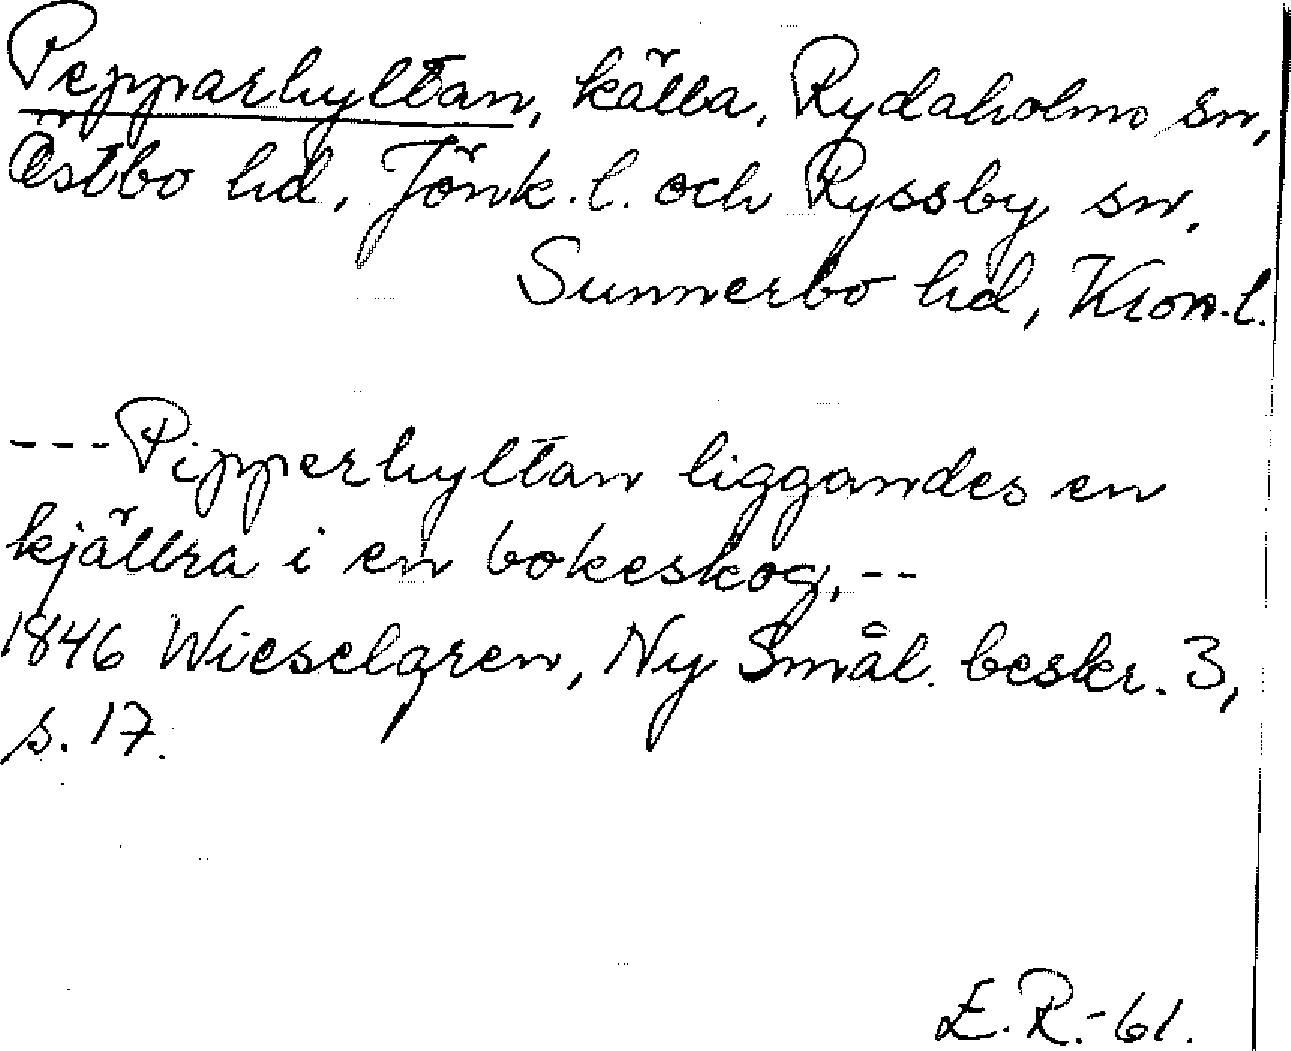 Pepparhyltan, källa, Rydaholms sn,
Östbo hd, Jönk. l. och Ryssby sn,
Sunnerbo hd, Kron. l.
--- Pipperhyltan liggandes en
kjällra i en bokeskog, --
1846 Wieselgren, Ny Smål. beskr. 3,
s. 17.
E. R. -61.